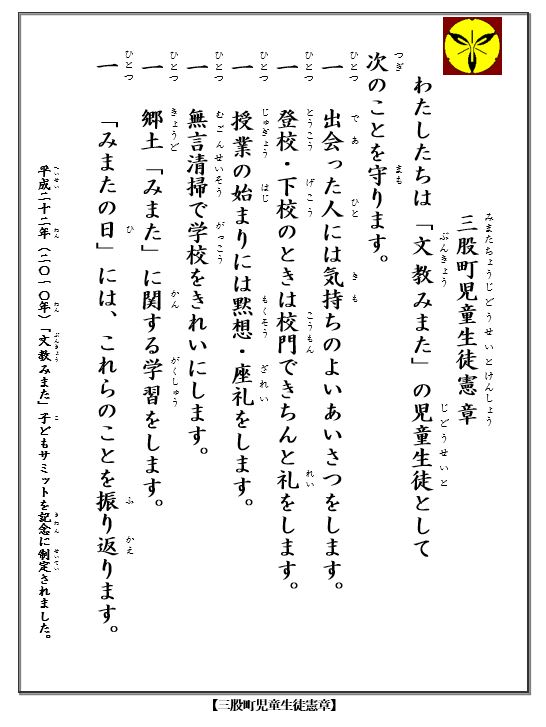 三股町児童生徒憲章
わたしたちは「文教みまた」の児童生徒として
次のことを守ります。
一 出会った人には気持ちのよいあいさつをします。
一 登校・下校のときは校門できちんと礼をします。
一 授業の始まりには黙想・座礼をします。
一 無言清掃で学校をきれいにします。
一 郷土「みまた」に関する学習をします。
一 「みまたの日」には、これらのことを振り返ります。
平成二十二年（二〇一〇年）「文教みまた」子どもサミットを記念に制定されました。
【三股町児童生徒憲章】